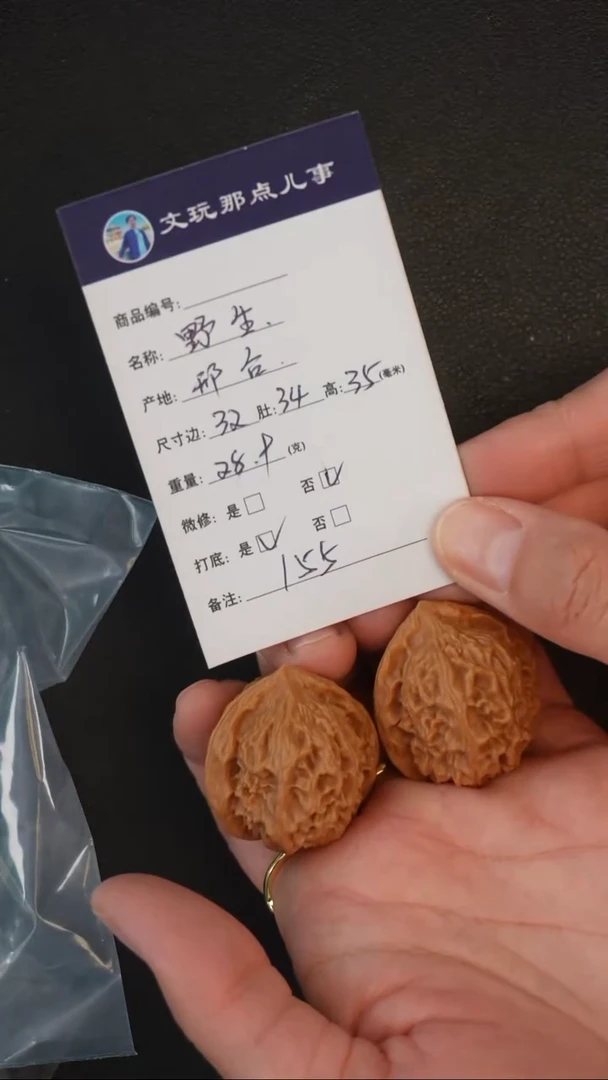 文玩那点儿事
商品编号:
名称: 野生.
产地: 邢台.
尺寸边: 32 肚: 34 高: 35 (毫米)
重量: 28.9 (克)
微修: 是□ 否☑
打底: 是☑ 否□
备注: 155